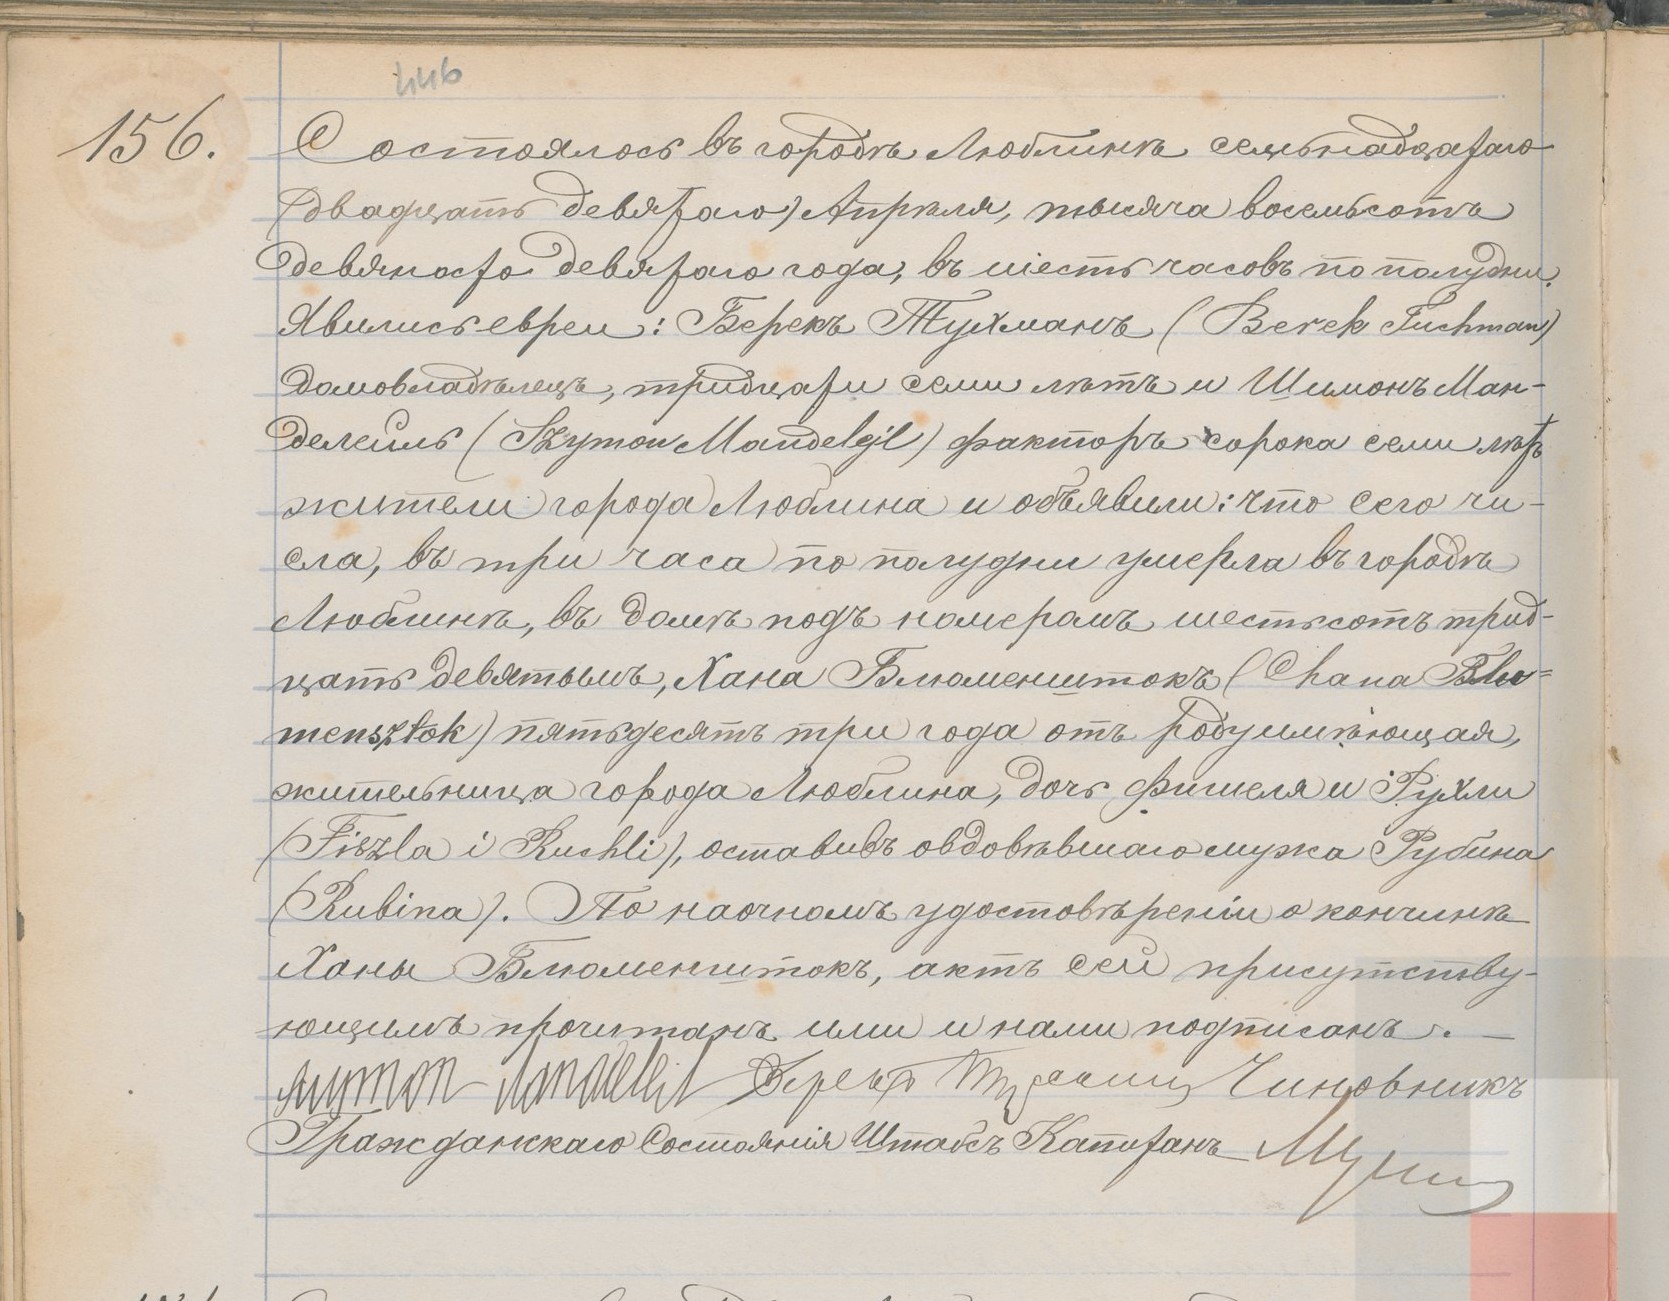 446
156. Состоялось въ городѣ Люблинѣ семьнадцатаго
(двадцать девятаго) Апрѣля, тысяча восемьсотъ
девяносто девятаго года, въ шесть часовъ по полудни.
Явились евреи: Берекъ Тухманъ (Berek Tuchman)
домовладѣлецъ, тридцати семи лѣтъ и Шимонъ Ман-
делейль (Szymon Mandelejl) факторъ сорока семи лѣтъ
жители города Люблина и объявили: что сего чи-
сла, въ три часа по полудни умерла въ городѣ
Люблинѣ, въ домѣ подъ номеромъ шестьсотъ трид-
цать девятымъ, Хана Блюменштокъ (Chana Blu=
mensztok) пятьдесятъ три года отъ роду имѣющая,
жительница города Люблина, дочь Фишеля и Рухли
(Fiszla i Ruchli), оставивъ овдовѣвшаго мужа Рубина
(Rubina). По наочномъ удостовѣреніи о кончинѣ
Ханы Блюменштокъ, актъ сей присутству-
ющимъ прочитанъ ими и нами подписанъ. —
Берекъ Тухманъ Чиновникъ
Гражданскаго Состоянія Штабсъ Капитанъ